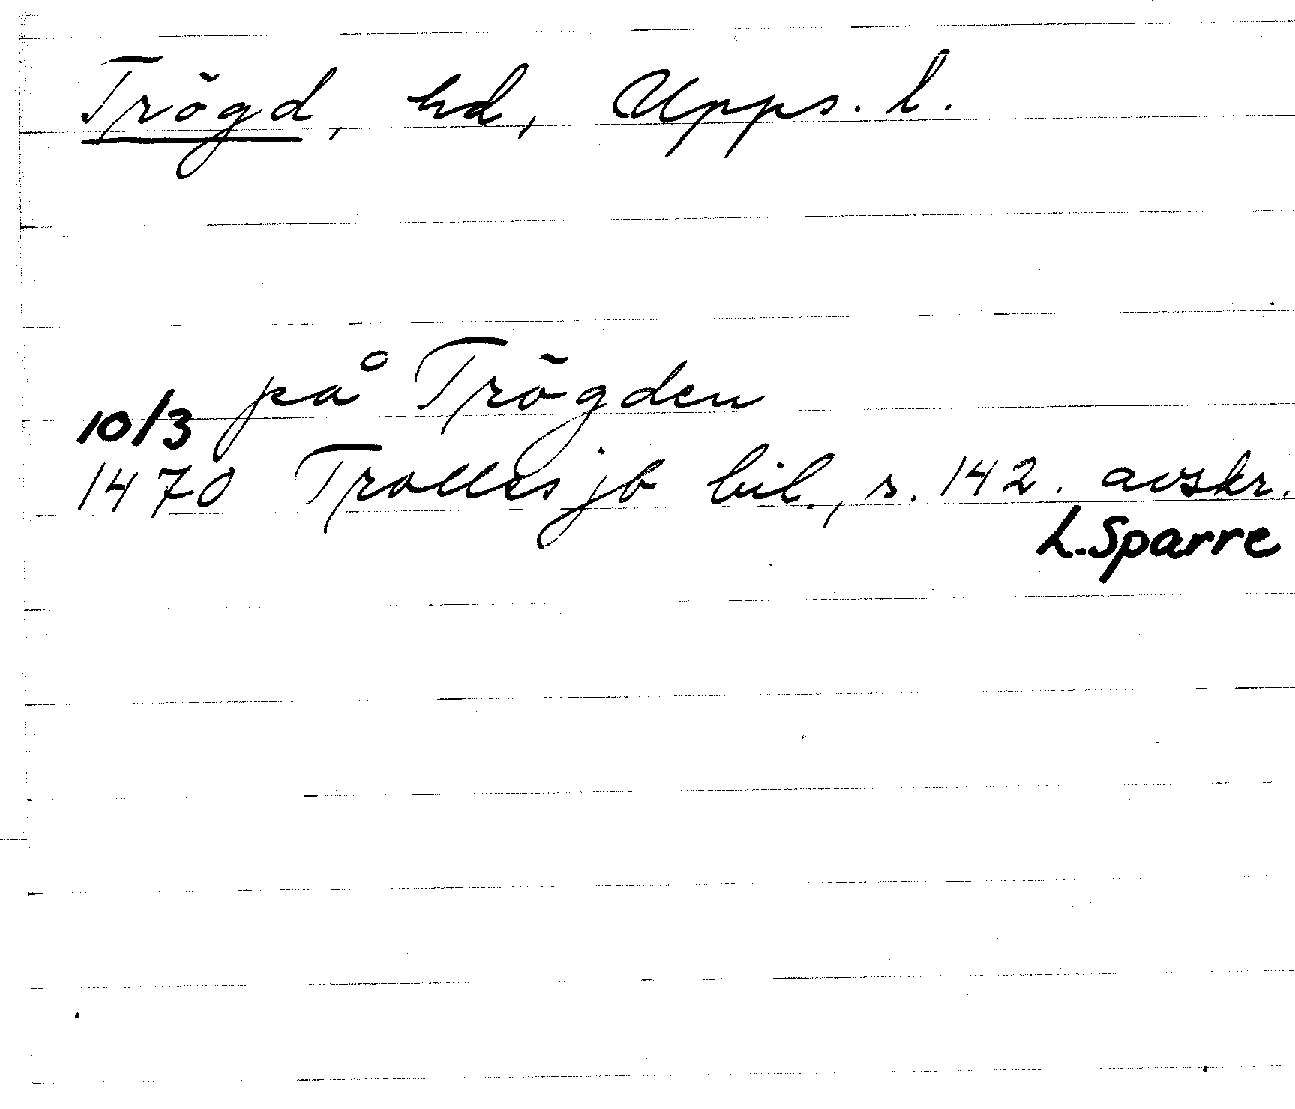 Trögd, hd, Upps. l.
på Trögden
10/3
1470 Trolles jb bil., s. 142. avskr.
L. Sparre